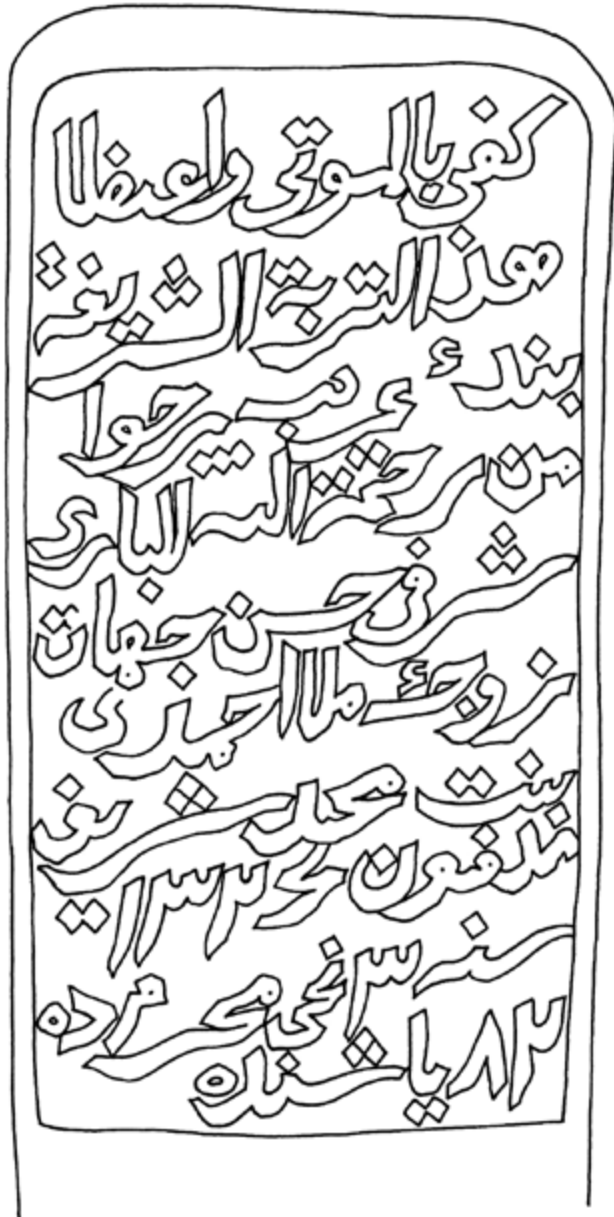 كفى بالموتى واعضلا
هذ التربة الشريفة
بندء يرحوا
من رحمة الله البارى
شرف حسن جهان
زوجئ ملاا احمذى
بنت محمد شريف
مدفون ١٣٢
سنه ٣نجى محرمده
٢٨ يا شنده